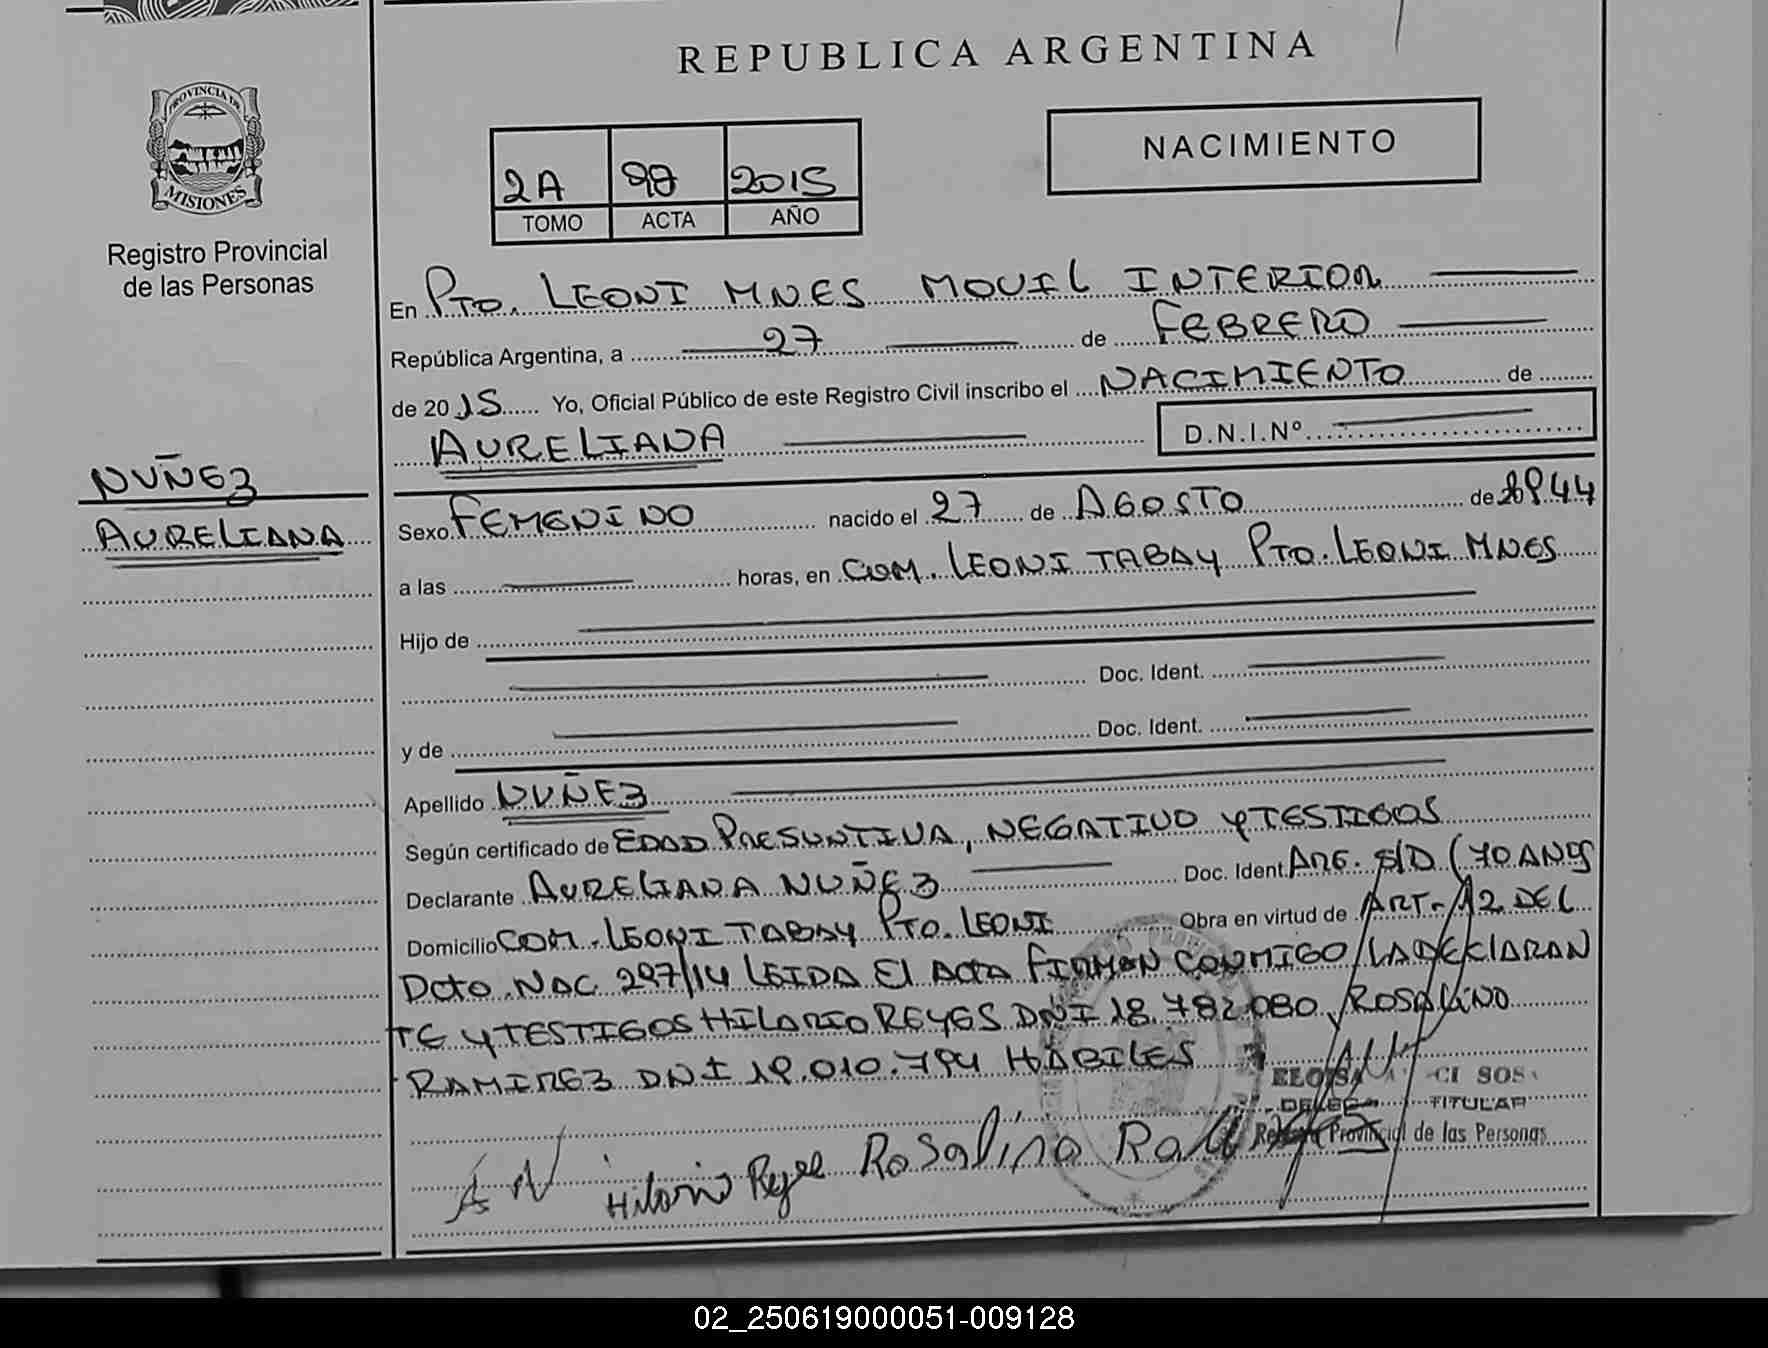 REPUBLICA ARGENTINA
PROVINCIA DE
MISIONES
Registro Provincial
de las Personas
NACIMIENTO
2A 98 2015
TOMO ACTA AÑO
En PTO. LEONI MNES MOVIL INTERIOR
República Argentina, a 27 de FEBRERO
de 2015 Yo, Oficial Público de este Registro Civil inscribo el NACIMIENTO de
AURELIANA D.N.I.Nº
NUÑEZ
AURELIANA
Sexo FEMENINO nacido el 27 de AGOSTO de 1944
a las horas, en COM. LEONI TABAY PTO. LEONI MNES
Hijo de
Doc. Ident.
y de Doc. Ident.
Apellido NUÑEZ
Según certificado de EDAD PRESUNTIVA, NEGATIVO Y TESTIGOS
Declarante AURELIANA NUÑEZ Doc. Ident. ARG. S/D (70 AÑOS
Domicilio COM. LEONI TABAY PTO. LEONI Obra en virtud de ART. 12 DEL
DCTO. NAC. 297/14 LEIDA EL ACTA FIRMAN CONMIGO LA DECLARAN
TE Y TESTIGOS HILARIO REYES DNI 18.782.080 ROSALINO
RAMIREZ DNI 19.010.794 HABILES
ELOISA SOSA
TITULAR
Provincial de las Personas
A N Hilario Reyes Rosalino
02_250619000051-009128